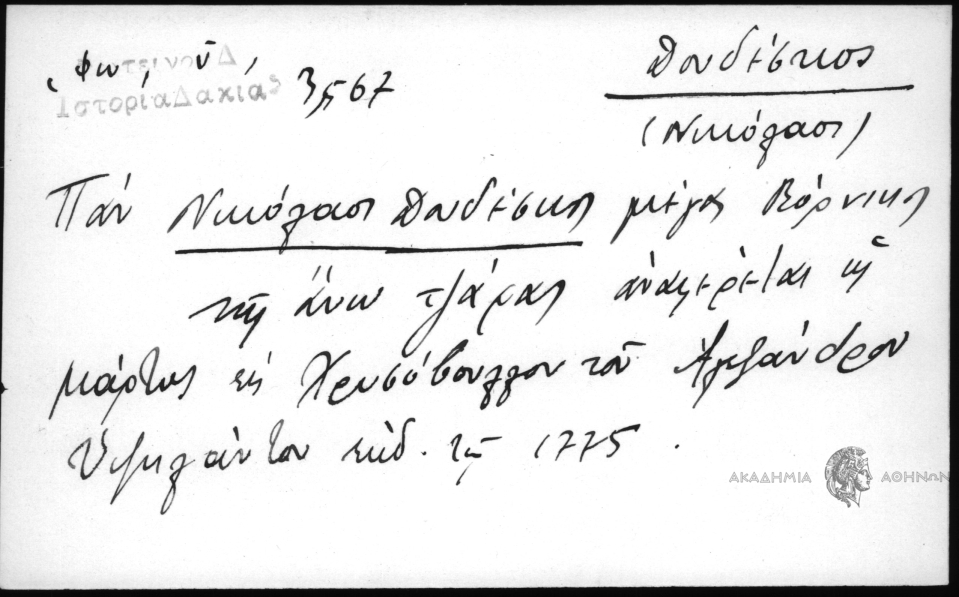 Φωτεινοῦ Δ
Ἱστορία Δακίας
3,567
Δουδέσκος
(Νικόλαος)
Πὰν Νικόλαος Δουδέσκος μέγας Βόρνικος
τῆς ἄνω τζάρας ἀναφέρεται ὡς
μάρτυς εἰς Χρυσόβουλλον τοῦ Ἀλεξάνδρου
Ὑψηλάντου ἐκδ. τῷ 1775.
ΑΚΑΔΗΜΙΑ ΑΘΗΝΩΝ